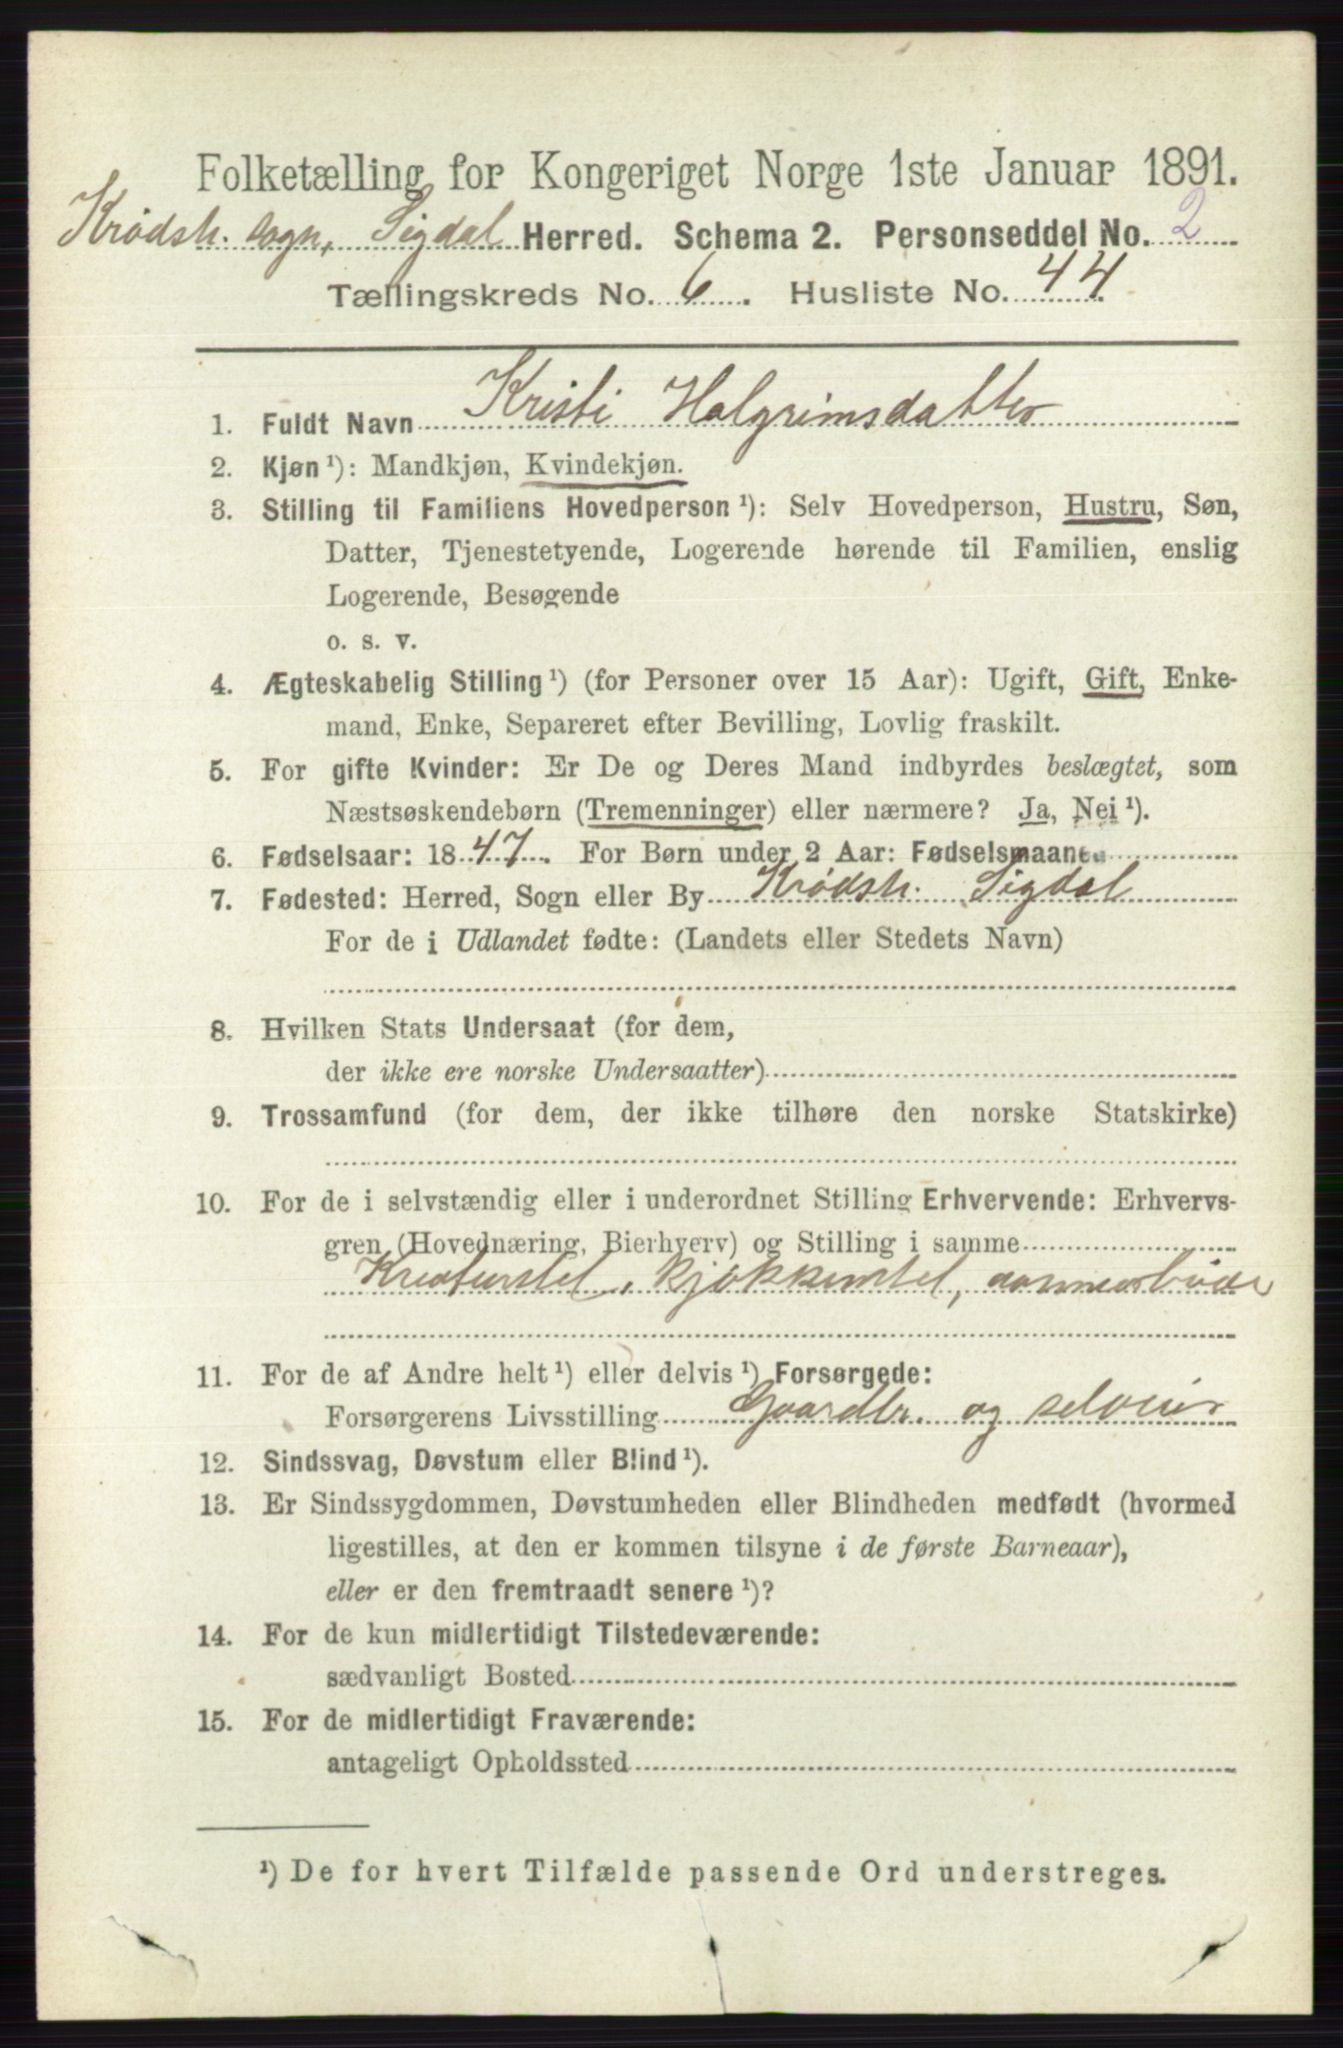 Folketælling for Kongeriget Norge 1ste Januar 1891.
Krødsh. sogn, Sigdal Herred. Schema 2. Personseddel No. 2
Tællingskreds No. 6. Husliste No. 44
1. Fuldt Navn Kristi Halgrimsdatter
2. Kjøn ¹): Mandkjøn, Kvindekjøn.
3. Stilling til Familiens Hovedperson ¹): Selv Hovedperson, Hustru, Søn,
Datter, Tjenestetyende, Logerende hørende til Familien, enslig
Logerende, Besøgende
o. s. v.
4. Ægteskabelig Stilling ¹) (for Personer over 15 Aar): Ugift, Gift, Enke-
mand, Enke, Separeret efter Bevilling, Lovlig fraskilt.
5. For gifte Kvinder: Er De og Deres Mand indbyrdes beslægtet, som
Næstsøskendebørn (Tremenninger) eller nærmere? Ja, Nei ¹).
6. Fødselsaar: 1847. For Børn under 2 Aar: Fødselsmaaned
7. Fødested: Herred, Sogn eller By Krødsh. Sigdal
For de i Udlandet fødte: (Landets eller Stedets Navn)
8. Hvilken Stats Undersaat (for dem,
der ikke ere norske Undersaatter)
9. Trossamfund (for dem, der ikke tilhøre den norske Statskirke)
10. For de i selvstændig eller i underordnet Stilling Erhvervende: Erhvervs-
gren (Hovednæring, Bierhverv) og Stilling i samme
Kreaturstel, kjøkkenstel,
11. For de af Andre helt ¹) eller delvis ¹) Forsørgede:
Forsørgerens Livsstilling Gaardbr. og selveier
12. Sindssvag, Døvstum eller Blind ¹).
13. Er Sindssygdommen, Døvstumheden eller Blindheden medfødt (hvormed
ligestilles, at den er kommen tilsyne i de første Barneaar),
eller er den fremtraadt senere ¹)?
14. For de kun midlertidigt Tilstedeværende:
sædvanligt Bosted
15. For de midlertidigt Fraværende:
antageligt Opholdssted
¹) De for hvert Tilfælde passende Ord understreges.